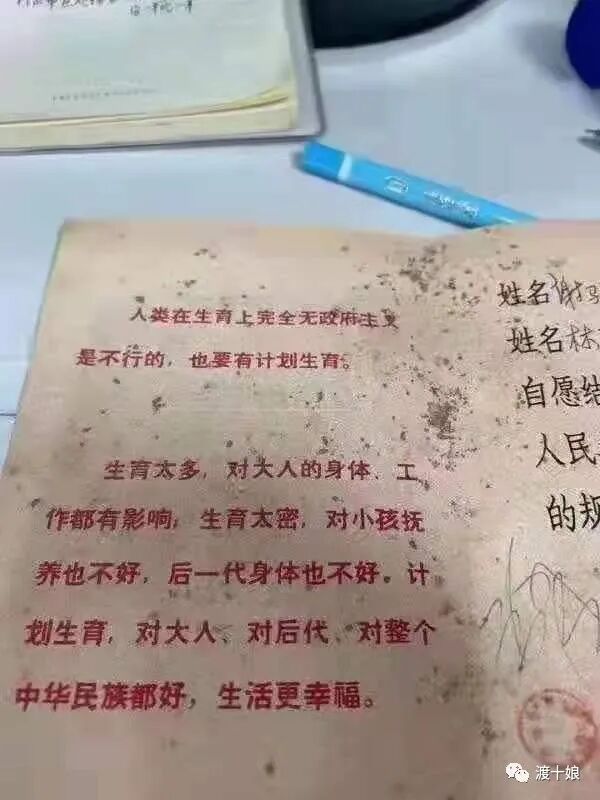 人类在生育上完全无政府主义
是不行的，也要有计划生育。
生育太多，对大人的身体、工
作都有影响；生育太密，对小孩抚
养也不好，后一代身体也不好。计
划生育，对大人、对后代、对整个
中华民族都好，生活更幸福。
姓名谢
姓名林
自愿结
人民
的规
渡十娘